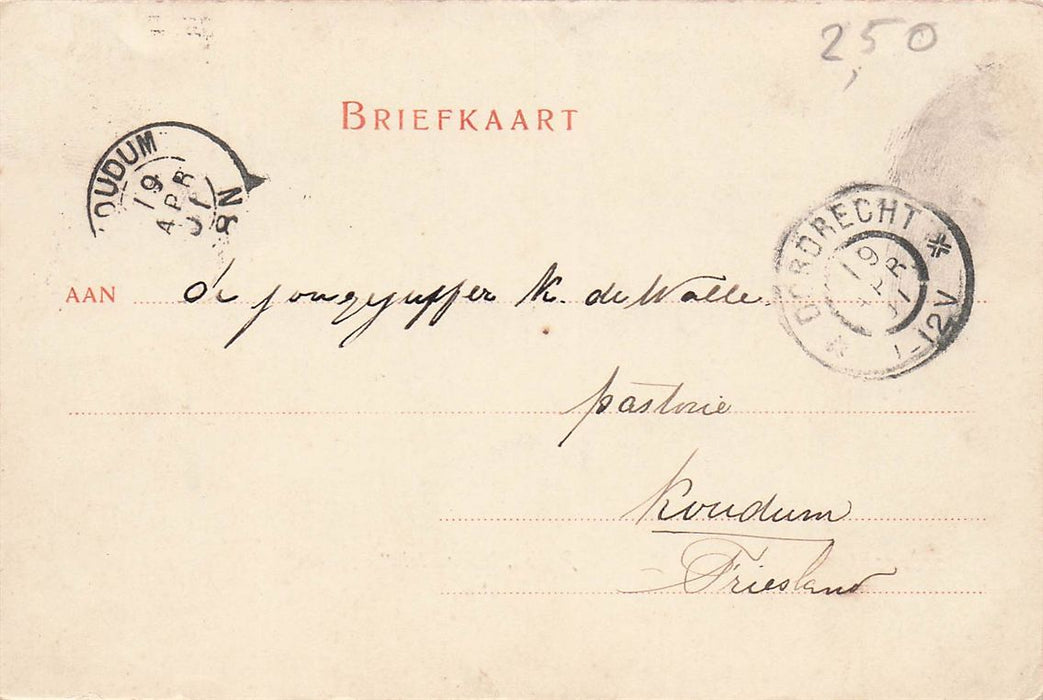 2,50
BRIEFKAART
OUDUM
19
APR
8N
DORDRECHT
19
APR
-12V
AAN de jongejuffer K. de Walle
pastorie
Koudum
Friesland